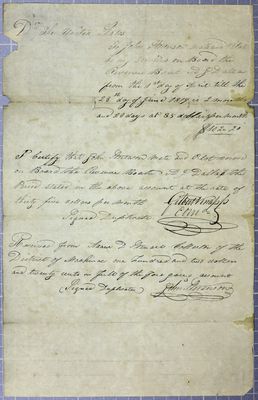 Dr The United States
To John
my Services on Board the
Revenue Boat A J Dallas
from the 1st day of April till the
28th day of June 1818 is 2 months
and 28 days at 35 dollars per month
$102.20
I certify that John mate and Pilot served
on Board the Revenue Boat A J Dallas the
Period stated in the above account at the rate of
thirty five dollars per month
Signed Duplicate
Received from Collector of the
District of one Hundred and two dollars
and twenty cents in full of the foregoing account
(Signed Duplicate)
John